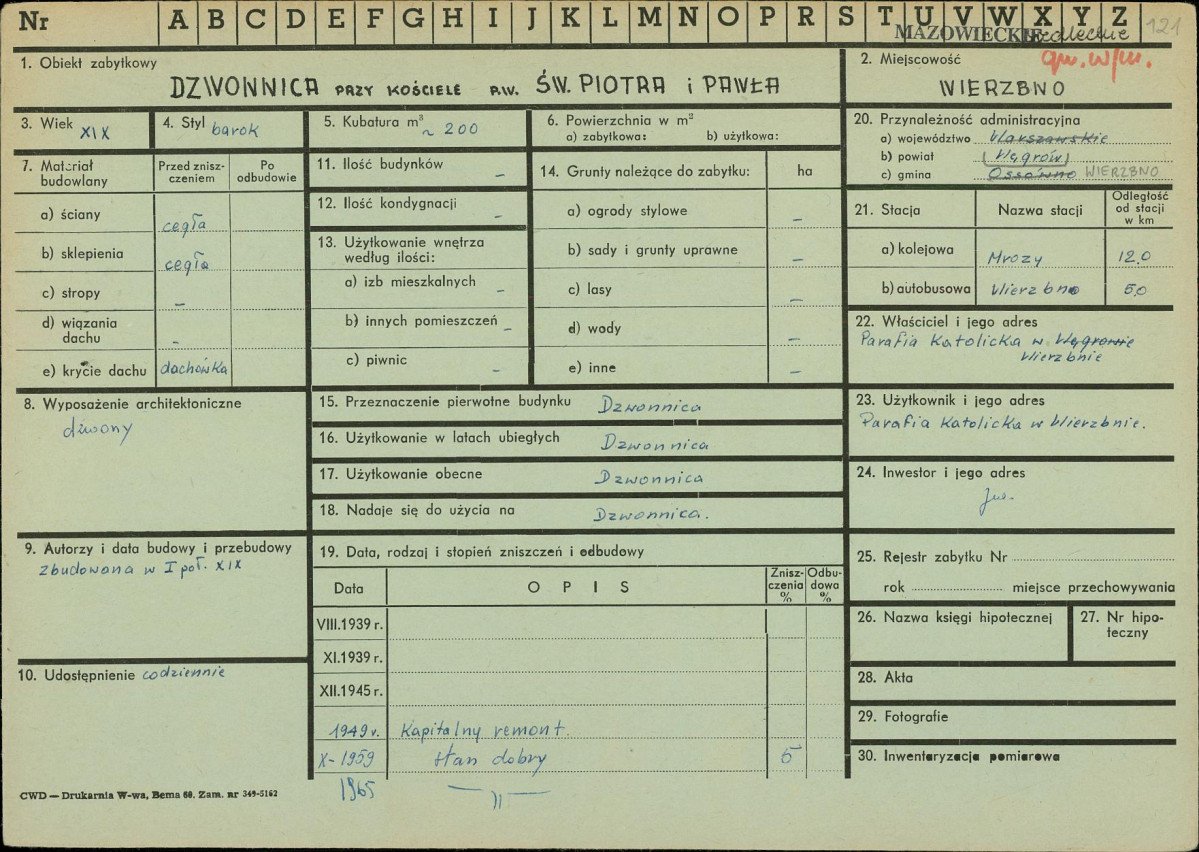 Nr A B C D E F G H I J K L M N O P R S T U V W X Y Z 121
MAZOWIECKIE siedleckie
gm. w/m.
1. Obiekt zabytkowy
DZWONNICA PRZY KOŚCIELE P.W. ŚW. PIOTRA i PAWŁA
2. Miejscowość
WIERZBNO
3. Wiek XIX
4. Styl barok
5. Kubatura m³ ~ 200
6. Powierzchnia w m²
a) zabytkowa: b) użytkowa:
7. Materiał budowlany
Przed zniszczeniem
Po odbudowie
a) ściany cegła
b) sklepienia cegła
c) stropy –
d) wiązania dachu –
e) krycie dachu dachówka
8. Wyposażenie architektoniczne
dzwony
9. Autorzy i data budowy i przebudowy
zbudowana w I poł. XIX
10. Udostępnienie codziennie
11. Ilość budynków –
12. Ilość kondygnacji –
13. Użytkowanie wnętrza
według ilości:
a) izb mieszkalnych –
b) innych pomieszczeń –
c) piwnic –
14. Grunty należące do zabytku: ha
a) ogrody stylowe –
b) sady i grunty uprawne –
c) lasy –
d) wody –
e) inne –
15. Przeznaczenie pierwotne budynku Dzwonnica
16. Użytkowanie w latach ubiegłych Dzwonnica
17. Użytkowanie obecne Dzwonnica
18. Nadaje się do użycia na Dzwonnica.
19. Data, rodzaj i stopień zniszczeń i odbudowy
Data OPIS Zniszczenia % Odbudowa %
VIII.1939 r.
XI.1939 r.
XII.1945 r.
1949 r. Kapitalny remont.
X-1959 stan dobry 5
1965 —"—
20. Przynależność administracyjna
a) województwo Warszawskie
b) powiat (Węgrów)
c) gmina Ossówno WIERZBNO
21. Stacja Nazwa stacji Odległość od stacji w km
a) kolejowa Mrozy 12.0
b) autobusowa Wierzbno 5.0
22. Właściciel i jego adres
Parafia Katolicka w Węgrowie
Wierzbnie
23. Użytkownik i jego adres
Parafia Katolicka w Wierzbnie.
24. Inwestor i jego adres
25. Rejestr zabytku Nr
rok miejsce przechowywania
26. Nazwa księgi hipotecznej
27. Nr hipoteczny
28. Akta
29. Fotografie
30. Inwentaryzacja pomiarowa
CWD — Drukarnia W-wa, Bema 60. Zam. nr 349-5162